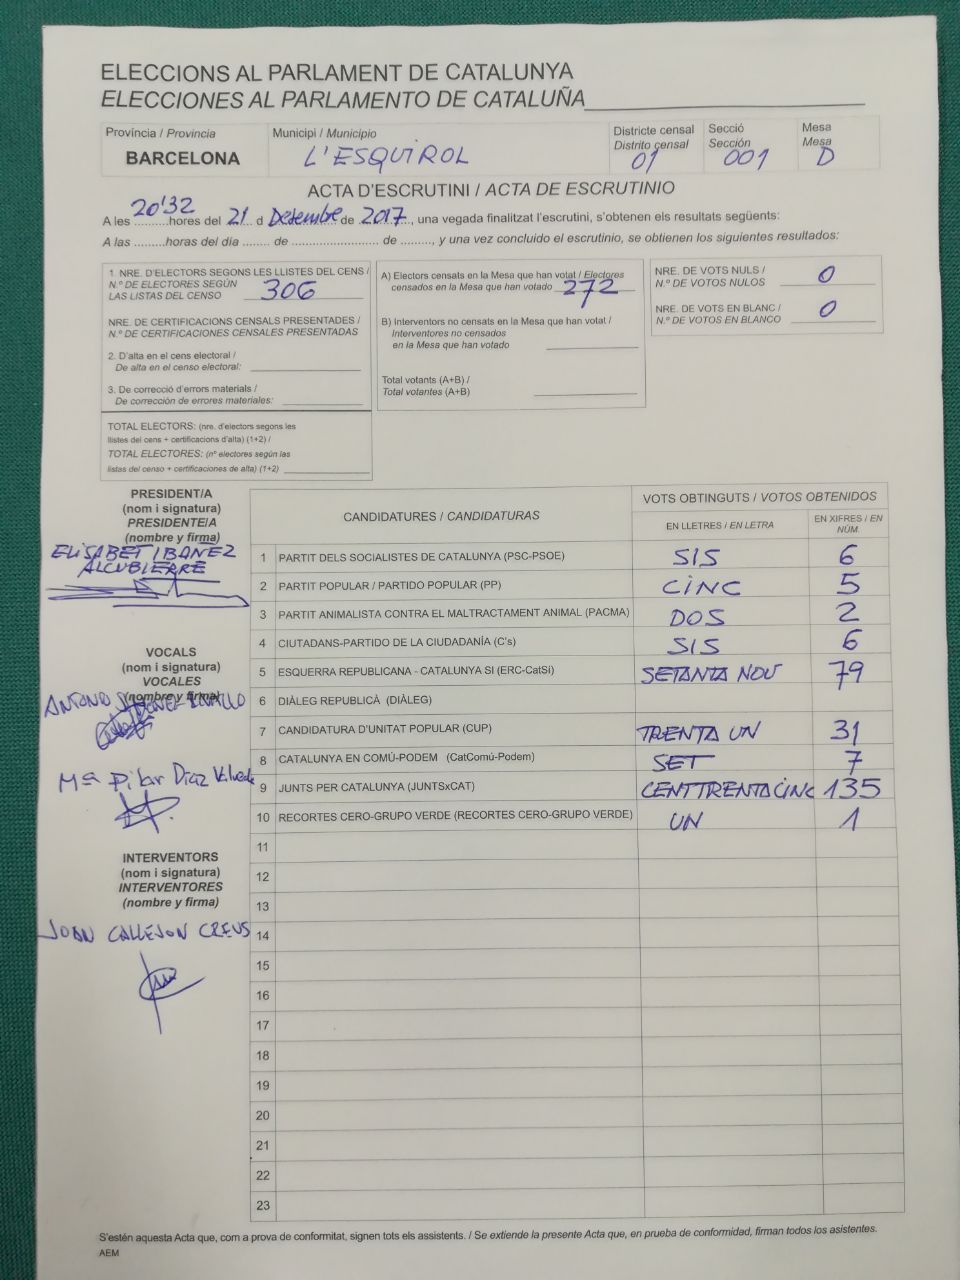 ELECCIONS AL PARLAMENT DE CATALUNYA
ELECCIONES AL PARLAMENTO DE CATALUÑA
Província / Provincia
BARCELONA
Municipi / Municipio
L'ESQUIROL
Districte censal
Distrito censal
01
Secció
Sección
001
Mesa
Mesa
D
ACTA D'ESCRUTINI / ACTA DE ESCRUTINIO
A les 20'32 hores del 21 d Desembre de 2017, una vegada finalitzat l'escrutini, s'obtenen els resultats següents:
A las .........horas del día ........ de .......................... de ........., y una vez concluido el escrutinio, se obtienen los siguientes resultados:
1. NRE. D'ELECTORS SEGONS LES LLISTES DEL CENS /
N.º DE ELECTORES SEGÚN
LAS LISTAS DEL CENSO 306
NRE. DE CERTIFICACIONS CENSALS PRESENTADES /
N.º DE CERTIFICACIONES CENSALES PRESENTADAS
2. D'alta en el cens electoral /
De alta en el censo electoral:
3. De correcció d'errors materials /
De corrección de errores materiales:
TOTAL ELECTORS: (nre. d'electors segons les
llistes del cens + certificacions d'alta) (1+2) /
TOTAL ELECTORES: (nº electores según las
listas del censo + certificaciones de alta) (1+2)
A) Electors censats en la Mesa que han votat / Electores
censados en la Mesa que han votado 272
B) Interventors no censats en la Mesa que han votat /
Interventores no censados
en la Mesa que han votado
Total votants (A+B) /
Total votantes (A+B)
NRE. DE VOTS NULS /
N.º DE VOTOS NULOS 0
NRE. DE VOTS EN BLANC /
N.º DE VOTOS EN BLANCO 0
PRESIDENT/A
(nom i signatura)
PRESIDENTE/A
(nombre y firma)
ELISABET IBAÑEZ
ALCUBIERRE
VOCALS
(nom i signatura)
VOCALES
(nombre y firma)
ANTONIO
Mª Pilar Díaz
INTERVENTORS
(nom i signatura)
INTERVENTORES
(nombre y firma)
JOAN CALLEJON CREUS
CANDIDATURES / CANDIDATURAS
VOTS OBTINGUTS / VOTOS OBTENIDOS
EN LLETRES / EN LETRA
EN XIFRES / EN
NÚM.
1 PARTIT DELS SOCIALISTES DE CATALUNYA (PSC-PSOE) SIS 6
2 PARTIT POPULAR / PARTIDO POPULAR (PP) CINC 5
3 PARTIT ANIMALISTA CONTRA EL MALTRACTAMENT ANIMAL (PACMA) DOS 2
4 CIUTADANS-PARTIDO DE LA CIUDADANÍA (C's) SIS 6
5 ESQUERRA REPUBLICANA - CATALUNYA SI (ERC-CatSí) SETANTA NOU 79
6 DIÀLEG REPUBLICÀ (DIÀLEG)
7 CANDIDATURA D'UNITAT POPULAR (CUP) TRENTA UN 31
8 CATALUNYA EN COMÚ-PODEM (CatComú-Podem) SET 7
9 JUNTS PER CATALUNYA (JUNTSxCAT) CENTTRENTACINC 135
10 RECORTES CERO-GRUPO VERDE (RECORTES CERO-GRUPO VERDE) UN 1
11
12
13
14
15
16
17
18
19
20
21
22
23
S'estén aquesta Acta que, com a prova de conformitat, signen tots els assistents. / Se extiende la presente Acta que, en prueba de conformidad, firman todos los asistentes.
AEM